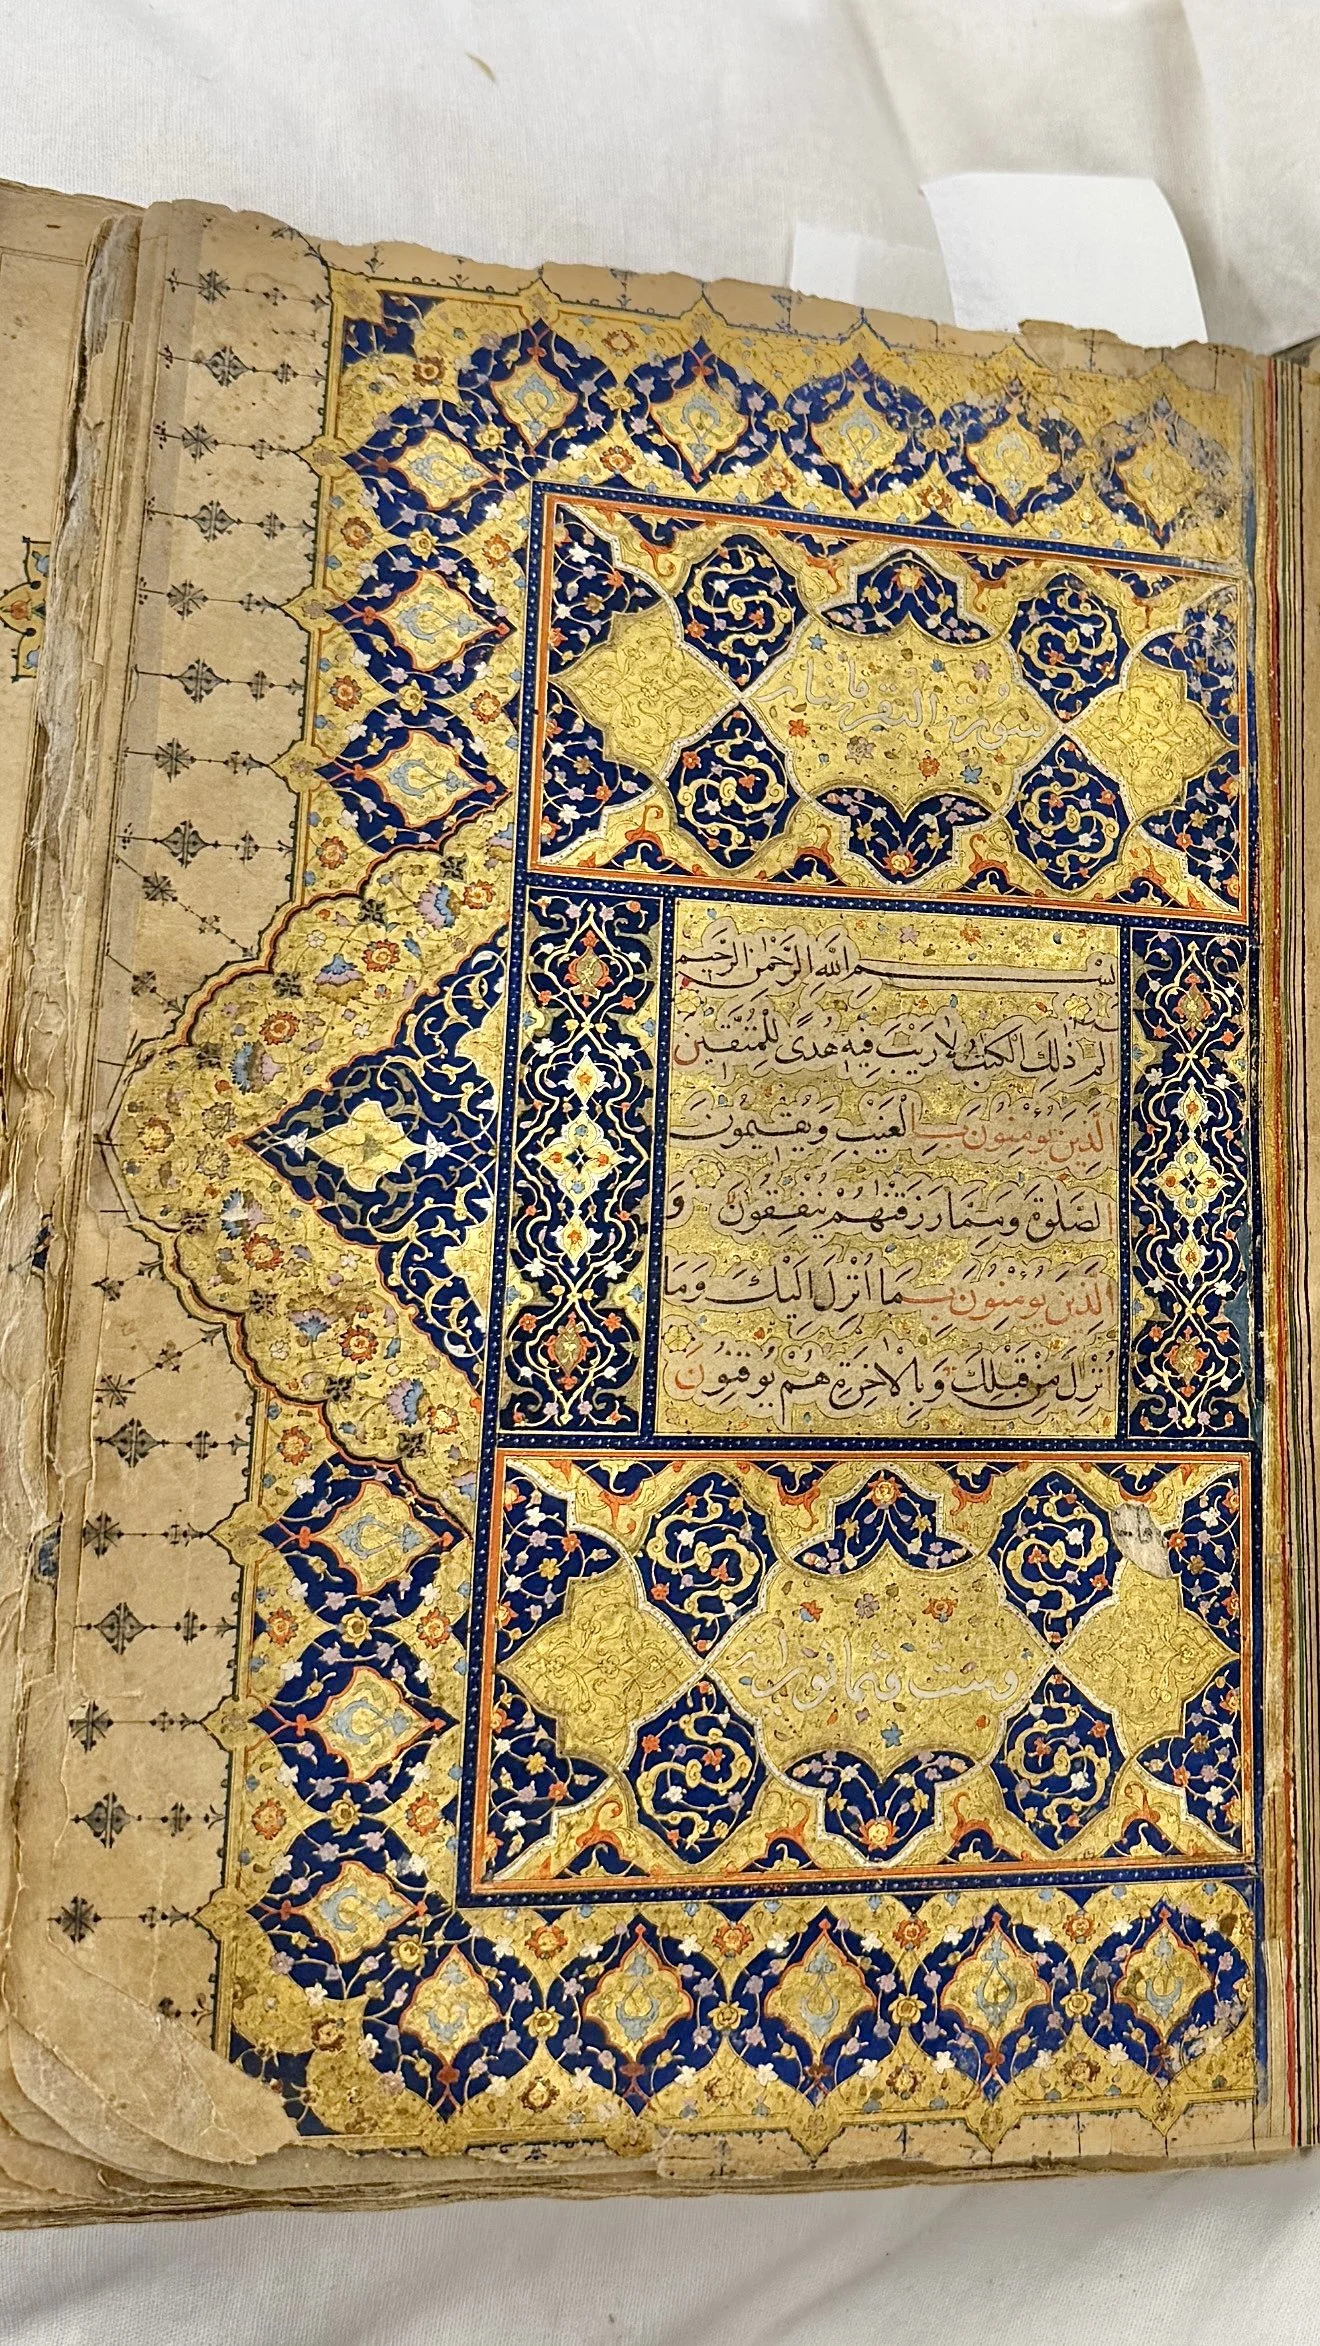 سورة البقرة مائتان
بِسْمِ اللهِ الرَّحْمٰنِ الرَّحِيمِ
الم ذٰلِكَ الْكِتٰبُ لَا رَيْبَ فِيهِ هُدًى لِلْمُتَّقِينَ
الَّذِينَ يُؤْمِنُونَ بِالْغَيْبِ وَيُقِيمُونَ
الصَّلٰوةَ وَمِمَّا رَزَقْنٰهُمْ يُنْفِقُونَ وَ
الَّذِينَ يُؤْمِنُونَ بِمَا اُنْزِلَ اِلَيْكَ وَمَا
اُنْزِلَ مِنْ قَبْلِكَ وَبِالْاٰخِرَةِ هُمْ يُوقِنُونَ
وست وثمانون اية